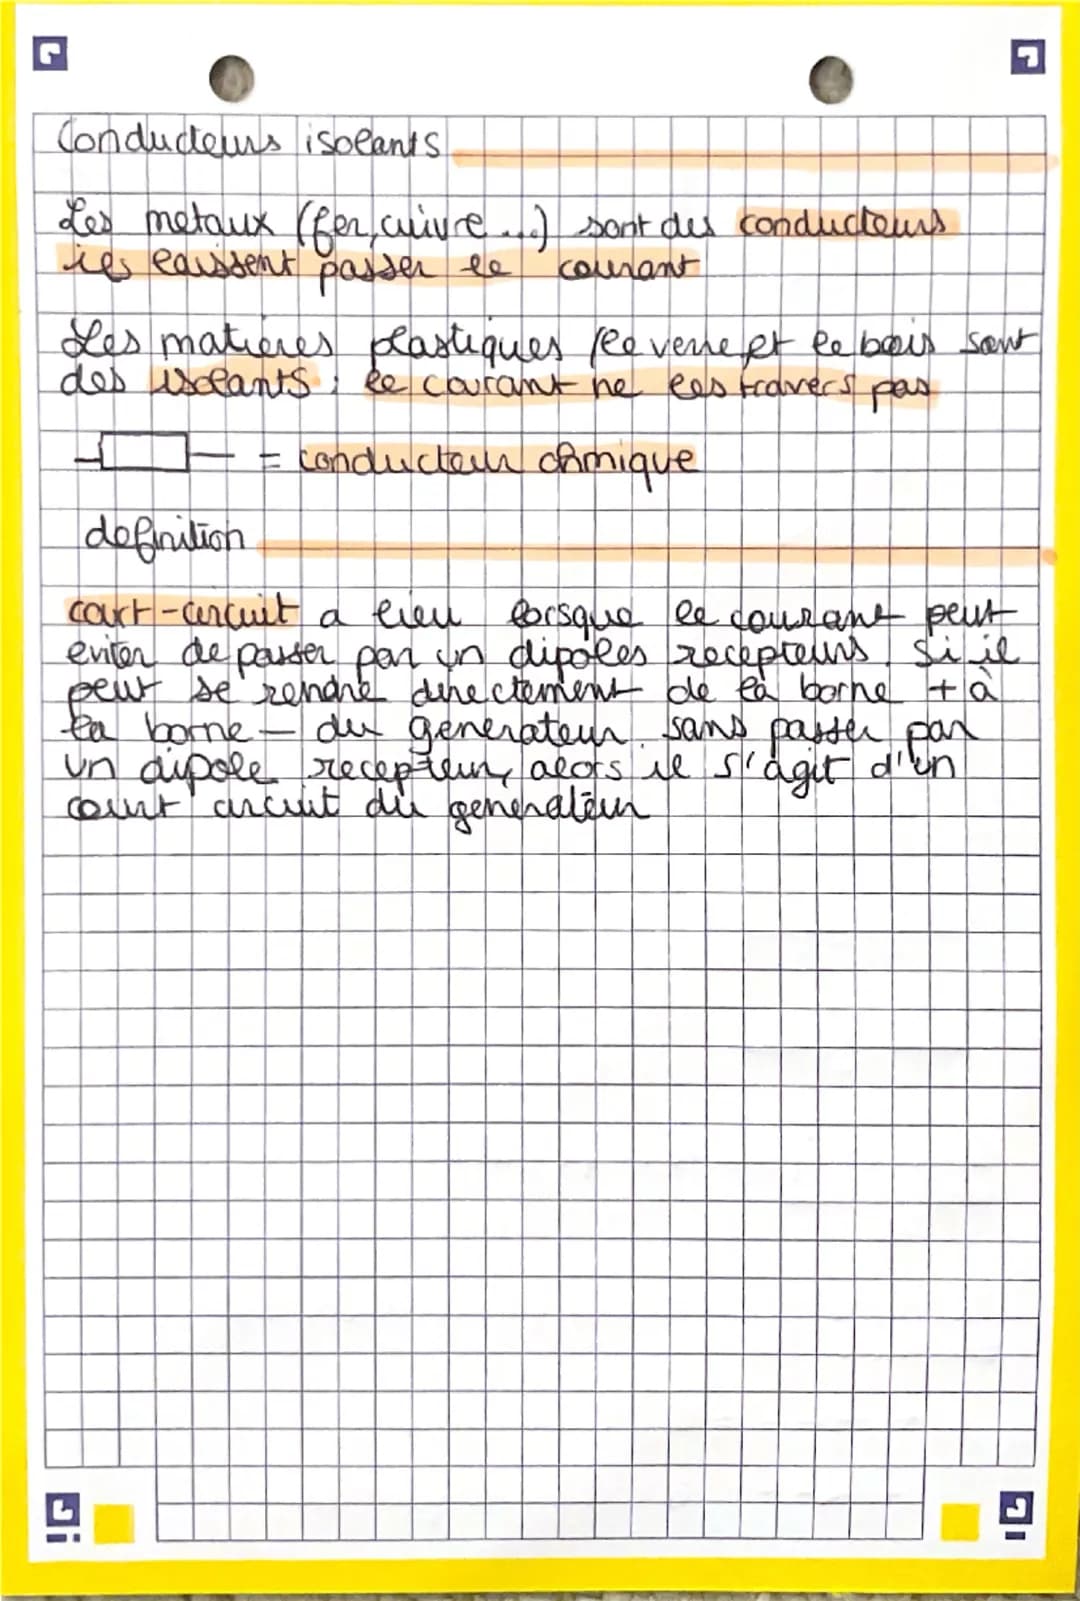 Conducteurs isolants
Les metaux (fer, cuivre...) sont des conducteurs
ils laissent passer le courant
Les matières plastiques, le verre et le bois sont
des isolants : le courant ne les travers pas
= conducteur ohmique
definition
court-circuit a lieu lorsque le courant peut
eviter de passer par un dipoles recepteurs. Si il
peut se rendre directement de la borne + à
la borne - du generateur sans passer par
un dipole recepteur, alors il s'agit d'un
court circuit du generateur